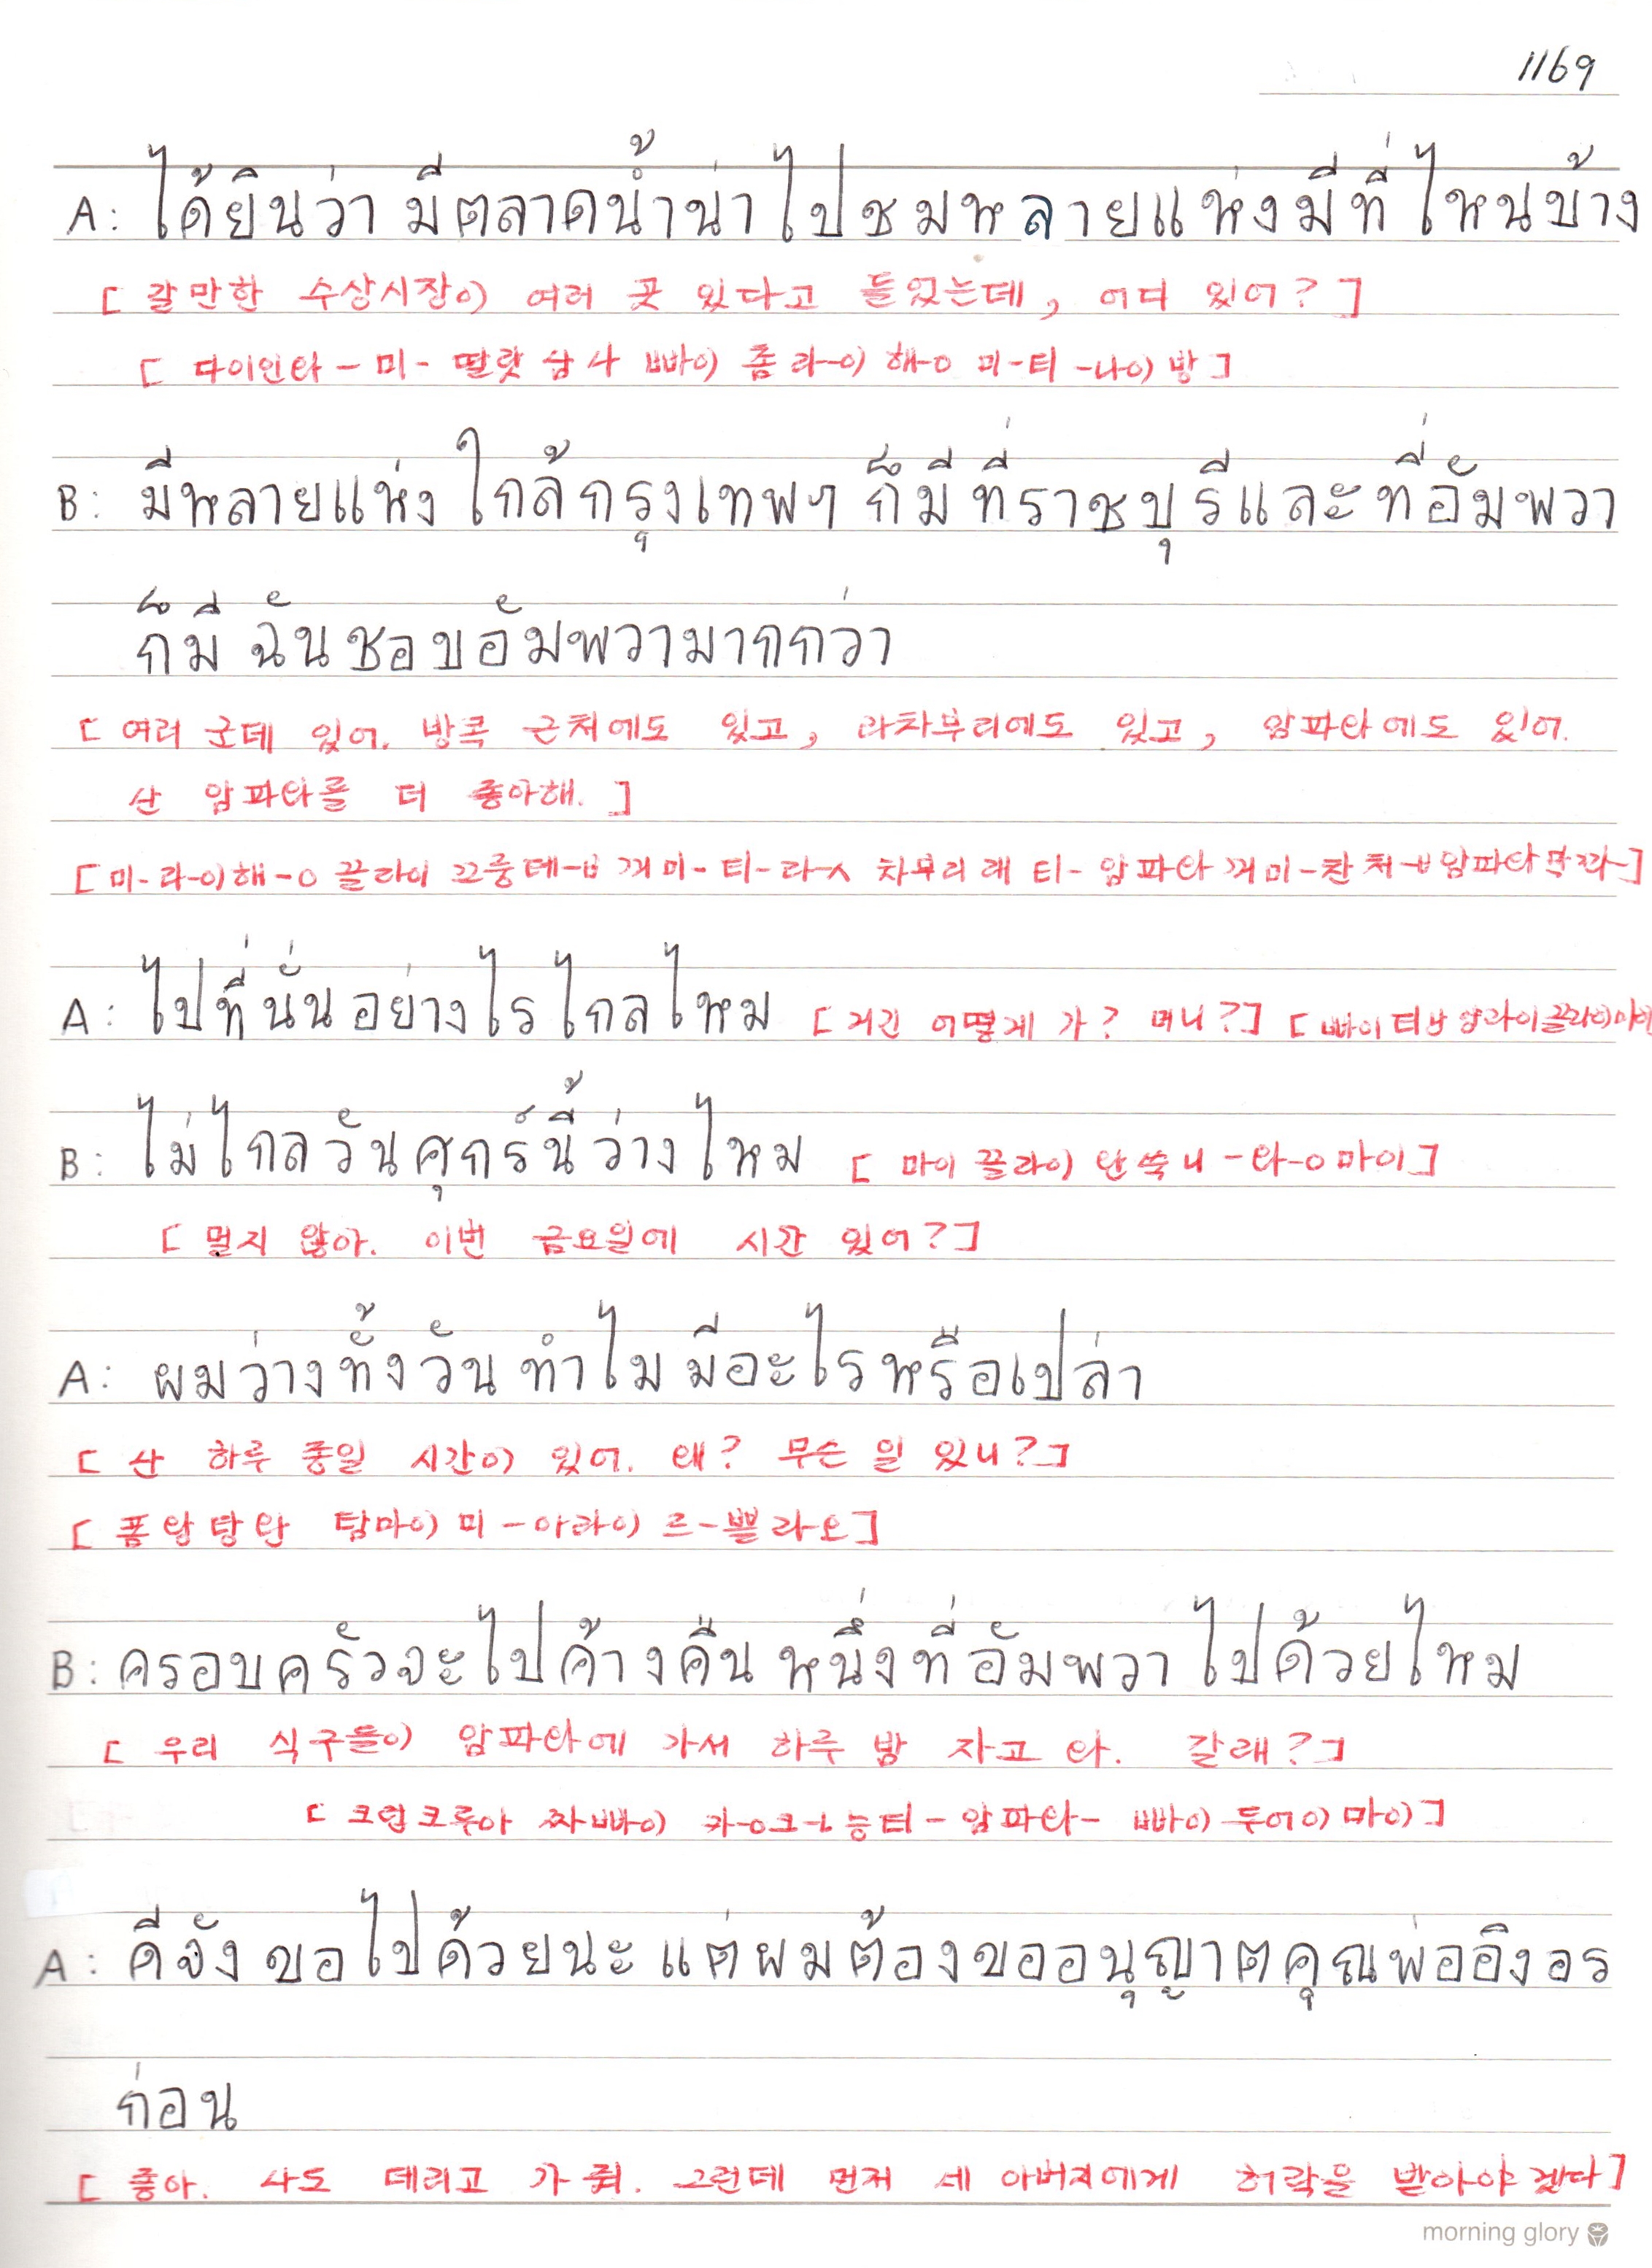 1169
A: ได้ยินว่า มีตลาดน้ำน่าไปชมหลายแห่งมีที่ไหนบ้าง
[ 갈만한 수상시장이 여러 곳 있다고 들었는데, 어디 있어? ]
[ 다이인와 - 미 - 딸랏 남 나 빠이 촘 라-이 해-ㅇ 미-티 -나이 방 ]
B: มีหลายแห่ง ใกล้กรุงเทพฯ ก็มี ที่ราชบุรีและที่อัมพวา
ก็มี ฉันชอบอัมพวามากกว่า
[ 여러 군데 있어. 방콕 근처에도 있고, 라차부리에도 있고, 암파와에도 있어.
난 암파와를 더 좋아해. ]
[미-라-이해-ㅇ 끌라이 끄룽테-ㅂ 꺼미-티-라-ㅅ 차부리 래 티- 암파와 꺼미-찬 처-ㅂ암파와 막 꽈-]
A: ไปที่นั่นอย่างไร ไกลไหม [ 거긴 어떻게 가? 머니?] [ 빠이 티난 양라이끌라이마이
B: ไม่ไกล วันศุกร์นี้ว่างไหม [ 마이 끌라이 완쑥니 -와-ㅇ마이]
[ 멀지 않아. 이번 금요일에 시간 있어?]
A: ผมว่างทั้งวัน ทำไม มีอะไรหรือเปล่า
[ 난 하루 종일 시간이 있어. 왜? 무슨 일 있니?]
[ 폼 왕 탕 완 탐마이 미 -아라이 르-쁠라오]
B: ครอบครัวจะไปค้างคืน หนึ่งที่อัมพวา ไปด้วยไหม
[ 우리 식구들이 암파와에 가서 하루 밤 자고 와. 갈래?]
[ 크럽크루아 짜빠이 카-ㅇ크-ㄴ능티- 암파와- 빠이 두어이마이]
A: ดีจัง ขอไปด้วยนะ แต่ผมต้องขออนุญาตคุณพ่ออิงอร
ก่อน
[ 좋아. 나도 데리고 가 줘. 그런데 먼저 네 아버지에게 허락을 받아야 겠다]
morning glory